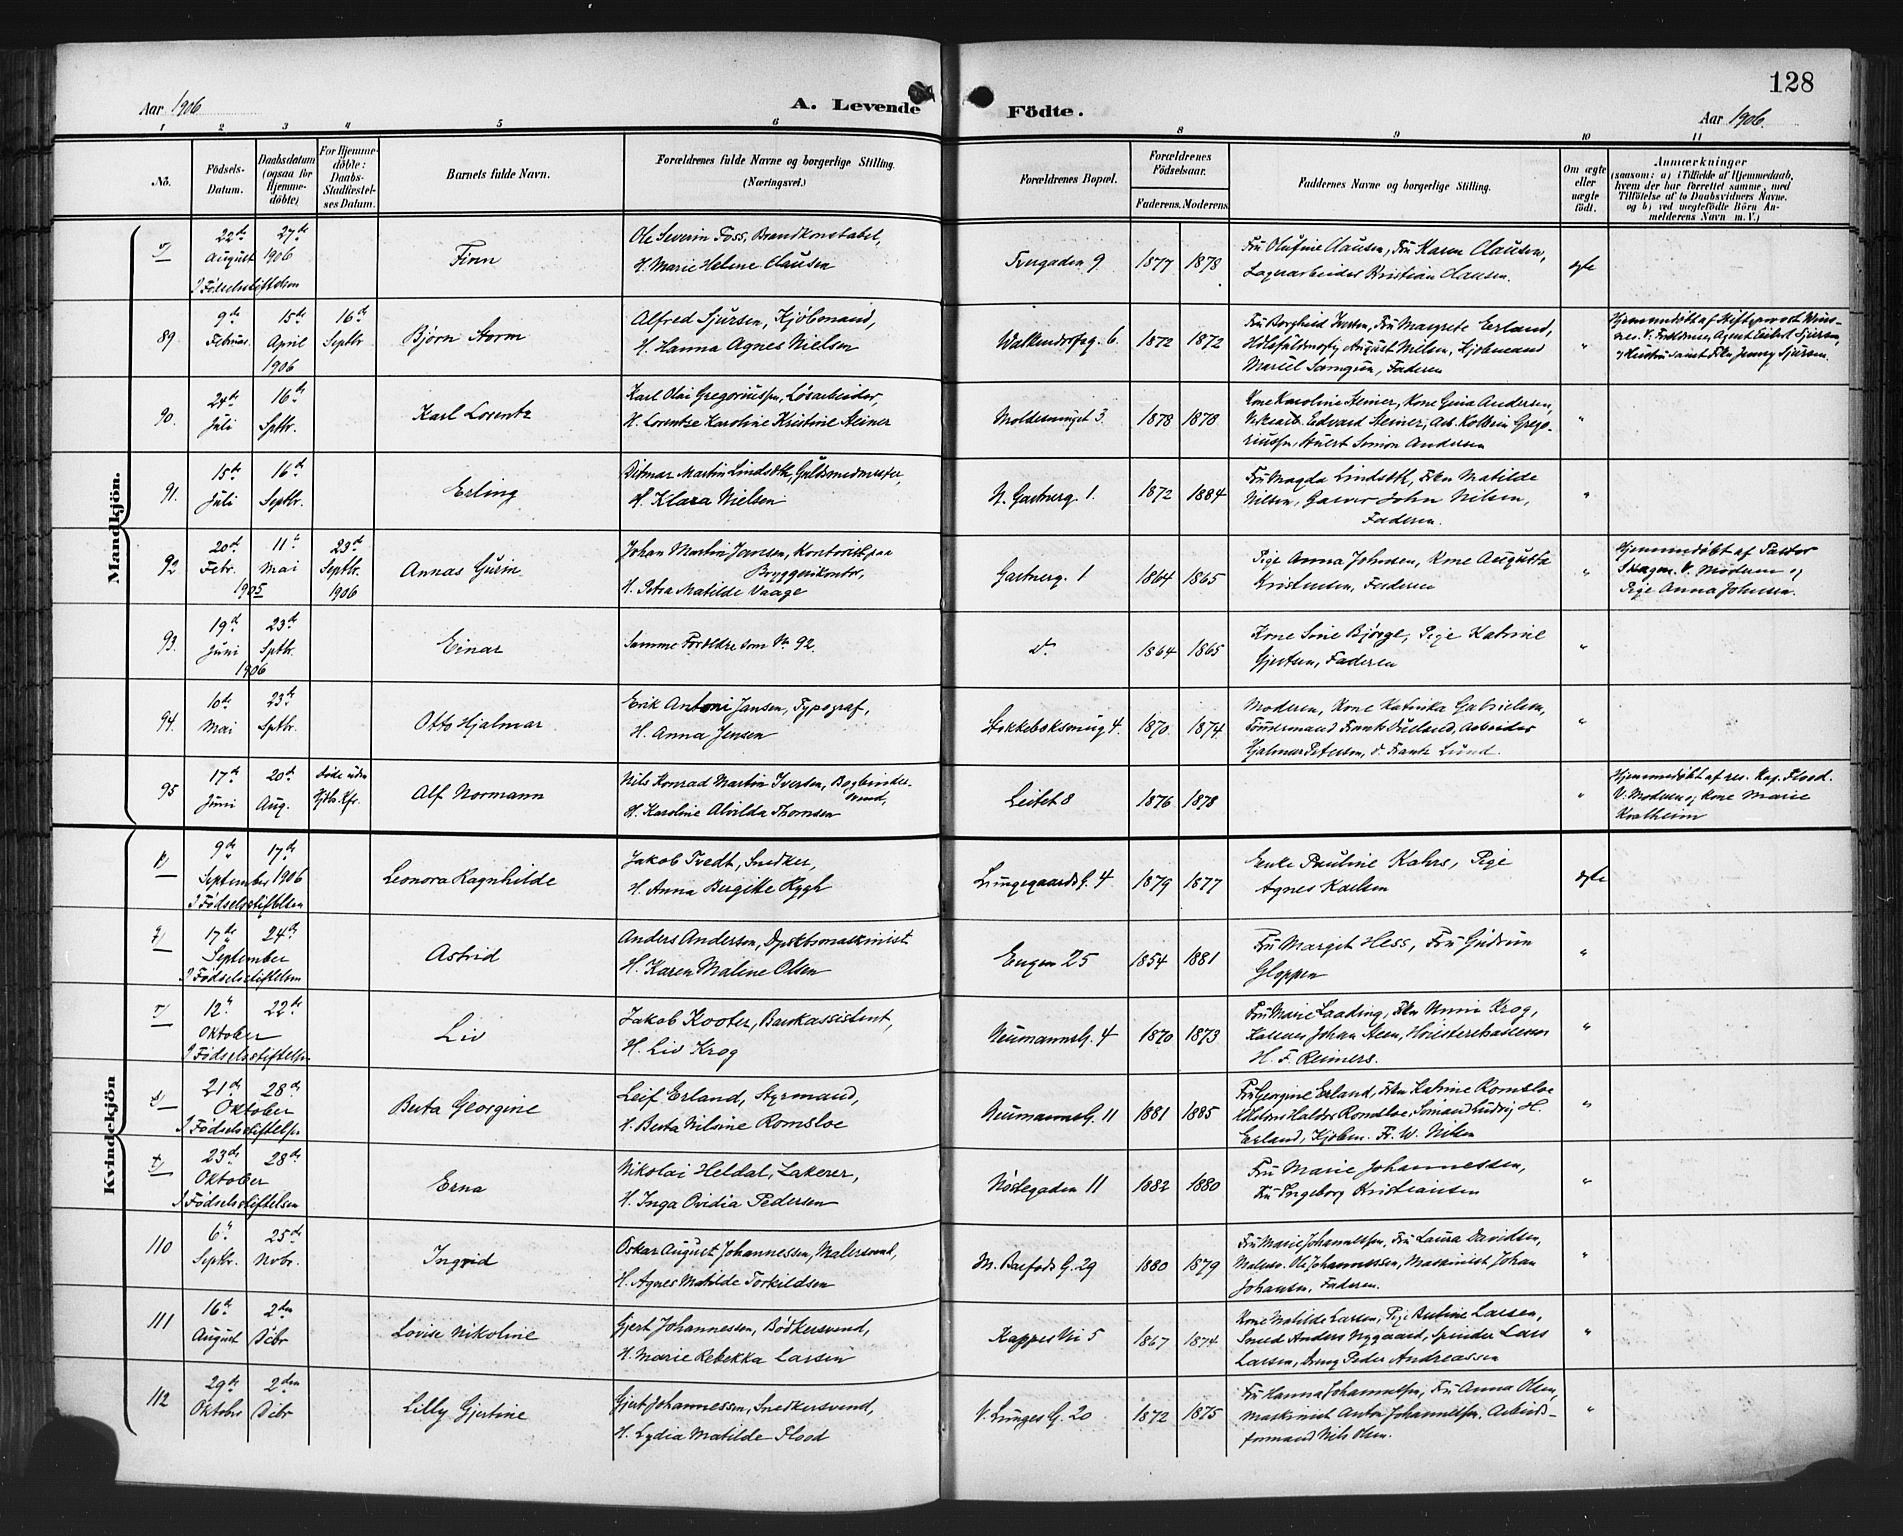 128
Aar 1906 A. Levende Födte. Aar 1906.
1 2 3 4 5 6 8 9 10 11
No.
Födsels-Datum.
Daabsdatum (ogsaa for Hjemme-döbte)
For Hjemme-döbte: Daabs-Stadfæstel-ses Datum.
Barnets fulde Navn.
Forældrenes fulde Navne og borgerlige Stilling.
(Næringsvei.)
Forældrenes Bopæl.
Forældrenes Födselsaar.
Faderens. Moderens.
Faddernes Navne og borgerlige Stilling.
Om ægte eller uægte födt.
Anmærkninger
(saasom: a) i Tilfælde af Hjemmedaab,
hvem der har forrettet samme, med
Tilföielse af to Daabsvidners Navne.
og b) ved uægtefödte Börn An-
melderens Navn m. V.)
Mandkjön.
22de August 27de 1906
I Fødselsstiftelsen
Finn
Ole Severin Foss, Brandkonstabel,
H. Marie Helene Clausen
Tvergaden 9 1877 1878
Fru Olufine Clausen, Fru Karen Clausen,
Lagerarbeider Kristian Clausen.
ægte
89. 9de Februar 15de April 1906 16de Septbr.
Bjørn Storm
Alfred Sjursen, Kjøbmand,
H. Hanna Agnes Nielsen
Walkendorfsg. 6 1872 1872
Fru Borghild Iversen, Fru Margrete Erland,
August Nilsen, Kjøbmand
Faderen
"
90. 24de Juli 16de Sptbr.
Karl Lorentz
Karl Olai Gregoriussen, Løsarbeider,
H. Lorentze Karoline Kristine Steiner
Moldesmuget 3 1878 1878
Kone Karoline Steiner, Kone Gina Andersen,
Edvard Steiner, Arb. Kolbein Grego-
riussen, Stuert Simon Andersen
"
91. 15de Juli 16de Septbr.
Erling
Ditmar Martin Lindseth, Guldsmedmester,
H. Klara Nielsen
N. Gartnerg. 1. 1872 1884
Fru Magda Lindseth, Frkn Matilde
Nilsen, Garver John Nilsen,
Faderen.
"
92 20de Febr. 11te Mai 1905 23de Septbr. 1906
Annas Gurin
Johan Martin Jansen, Kontorist paa
Bryggerikontor,
H. Petra Matilde Vaage
Gartnerg. 1 1864 1865
Pige Anna Johnsen, Kone Augusta
Kristensen, Faderen
"
Hjemmedøbt af Pastor
V. Moderen og
Pige Anna Johnsen.
93. 19de Juni 23de Sptbr. 1906
Einar
Samme Forældre som No 92.
d°. 1864 1865
Kone Sine Bjørge, Pige Katrine
Gjertsen, Faderen
"
94. 10de Mai 23de Sptbr.
Otto Hjalmar
Erik Antoni Jansen, Typograf,
H. Anna Jensen
Stokkeboksmug 4. 1870 1874
Moderen, Kone Katinka Gabrielsen,
Arbeider
Hjalmar Petersen, Frantz Lund.
"
95 17de Juni 20de Aug. Døde uden
Alf Normann
Nils Konrad Martin Iversen, Bogbinder-
svend,
H. Karoline Alvilda Thomsen
Leitet 8 1876 1878
"
Hjemmedøbt af res. Kap. Flood.
V. Moderen og Kone Marie
Kvalheim
Kvindekjön
p) 9de 17de September 1906
I Fødselsstiftelsen
Leonora Ragnhilde
Jakob Tvedt, Snedker,
H. Anna Birgitte Rygh
Lungegaards G. 4 1879 1877
Enke Pauline Kahrs, Pige
Agnes Karlsen
ægte
q) 17de 24de September
I Fødselsstiftelsen
Astrid
Anders Anderson, Dpsktsmaskinist
H. Karen Maline Olsen
Engen 25 1854 1881
Fru Margit Hess, Fru Gudrun
Gloppen
"
r) 12te 22de Oktober
I Fødselsstiftelsen
Liv
Jakob Kooter, Bankassistent,
H. Liv Krog
Neumanns G. 4 1870 1873
Fru Marie Laading, Frkn Mimi Krog,
Johan Steen,
H. F. Reimers.
"
s) 21de 28de Oktober
I Fødselsstiftelsen
Berta Georgine
Leif Erland, Styrmand,
H. Berta Nilsine Romsloe
Neumanns G. 11 1881 1885
Fru Georgine Erland, Frkn Katrine Romsloe
Haldor Romsloe, Sømand Ludvig H.
Erland, Kjøbm. Fr. W. Nilsen
"
t) 23de 28de Oktober
I Fødselsstiftelsen
Erna
Nikolai Heldal, Lakerer,
H. Inga Ovidia Pedersen
Nøstegaden 11 1882 1880
Fru Marie Johannessen,
Fru Ingeborg Kristiansen
"
110 6te Septbr. 25de Novbr.
Ingrid
Oskar August Johannessen, Malersvend,
H. Agnes Matilde Torkildsen
M. Barfods G. 29 1880 1879
Fru Marie Johannesen, Fru Laura Davidsen,
Malersv. Ole Johannessen, Maskinist Johan
Johansen, Faderen.
"
111 16de August 2den Dcbr
Lovise Nikoline
Gjert Johannessen, Bødkersvend,
H. Marie Rebekka Larsen
Kappes Ni 5 1867 1874
Kone Matilde Larsen, Pige Larsen,
Smed Anders Nygaard, Lars
Larsen, Dreng Peder Andreassen
"
112 29de Oktober 2den Dcbr
Lilly Gjertine
Gjert Johannessen, Snedkersvend,
H. Lydia Matilde Flood
V. Lunges G. 20 1872 1875
Fru Hanna Johannessen, Fru Anna Olsen,
Maskinist Anton Johannessen, Arbeids-
formand Nils Olsen.
"